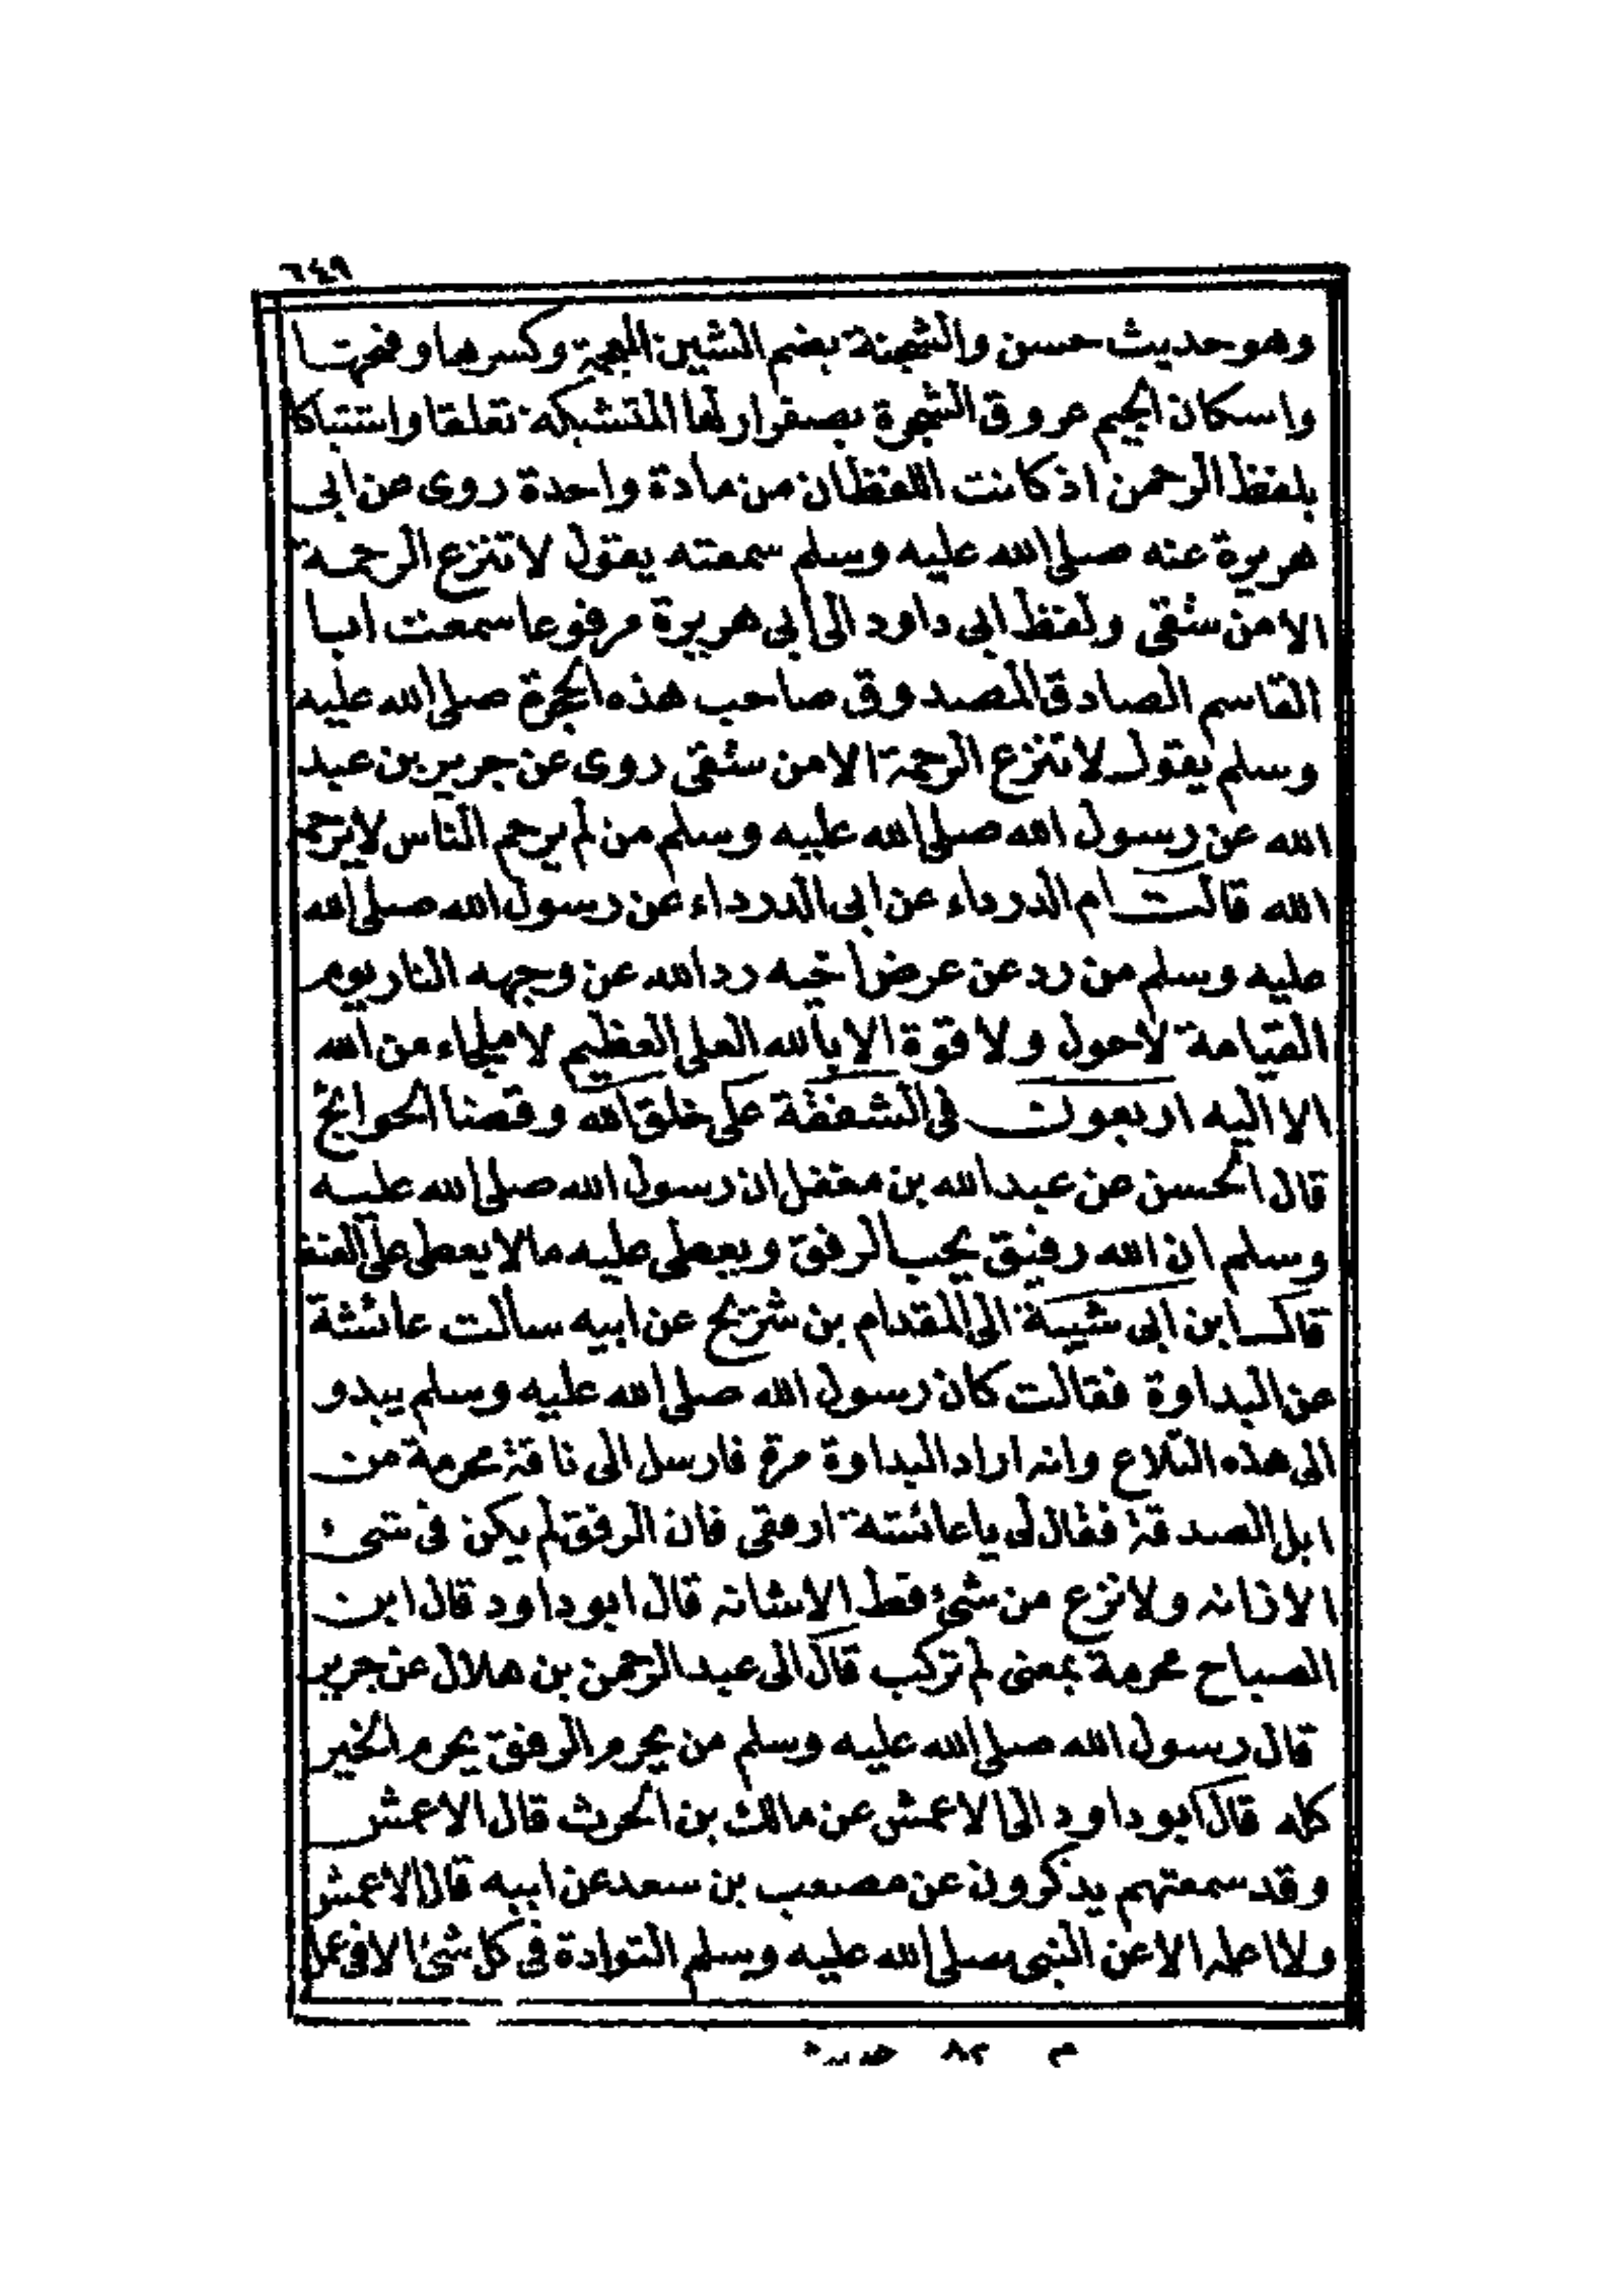 ٦٤٩
وهو حديث حسن والشجنة بضم الشين المعجمة وكسرها وفتحها
واسكان الجيم عروق الشجرة بصغرارلها المتشبكه تعلقا واشتباكا
بلفظ الرحمن اذ كانت اللفظان من مادة واحدة روى عن ابى
هريرة عنه صلى الله عليه وسلم سمعته يقول لا تنزع الرحمة
الا من شقى ولفظ ابى داود الى ابى هريرة مرفوعا سمعت ابا
القاسم الصادق المصدوق صاحب هذه الحجرة صلى الله عليه
وسلم يقول لا تنزع الرحمة الا من شقى روى عن جرير بن عبد
الله عن رسول الله صلى الله عليه وسلم من لم يرحم الناس لا يرحمه
الله قالت ام الدرداء عن ابى الدرداء عن رسول الله صلى الله
عليه وسلم من رد عن عرض اخيه رد الله عن وجهه النار يوم
القيامة لا حول ولا قوة الا بالله العلى العظيم لا ملجاء من الله
الا اليه اربعون فى الشفقة على خلق الله وقضا الحوائج
قال الحسن عن عبد الله بن مغفل ان رسول الله صلى الله عليه
وسلم ان الله رفيق يحب الرفق ويعطى عليه ما لا يعطى على العنف
قال ابن ابى شيبة الى المقدام بن شريح عن ابيه سألت عائشة
عن البداوة فقالت كان رسول الله صلى الله عليه وسلم يبدو
الى هذه التلاع وانه اراد البداوة مرة فارسل الى ناقة محرمة من
ابل الصدقة فقال لى يا عائشة ارفقى فان الرفق لم يكن فى شىء
الا زانه ولا نزع من شئ قط الا شانه قال ابو داود قال ابن
الصباح محرمة بمعنى لم تركب قال الى عبد الرحمن بن هلال عن جرير
قال رسول الله صلى الله عليه وسلم من يحرم الرفق يحرم الخير
كله قال ابو داود الى الاعمش عن مالك بن الحرث قال الاعمش
وقد سمعتهم يذكرون عن مصعب بن سعد عن ابيه قال الاعمش
ولا اعلمه الا عن النبى صلى الله عليه وسلم التوادة فى كل شئ الا فى عمل
م ٨٢